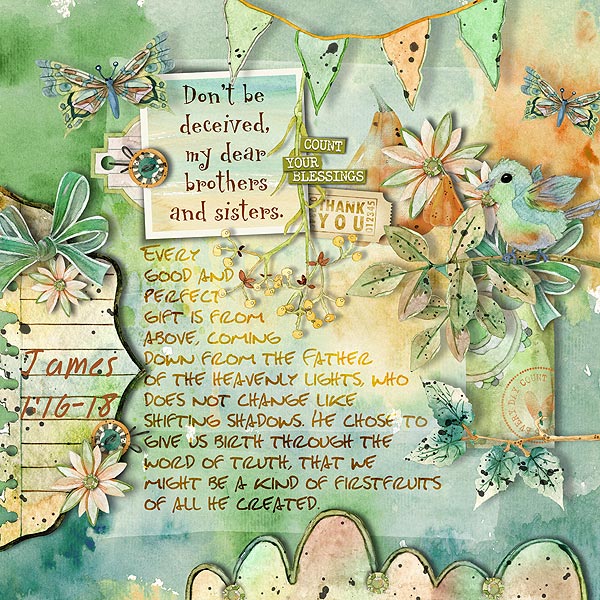 Don't be
deceived,
my dear
brothers
and sisters.
COUNT
YOUR
BLESSINGS
THANK
YOU
012345
Every
good and
perfect
gift is from
above, coming
down from the Father
of the heavenly lights, who
does not change like
shifting shadows. He chose to
give us birth through the
word of truth, that we
might be a kind of firstfruits
of all he created.
James
1:16-18
EVERY DAY COUNT